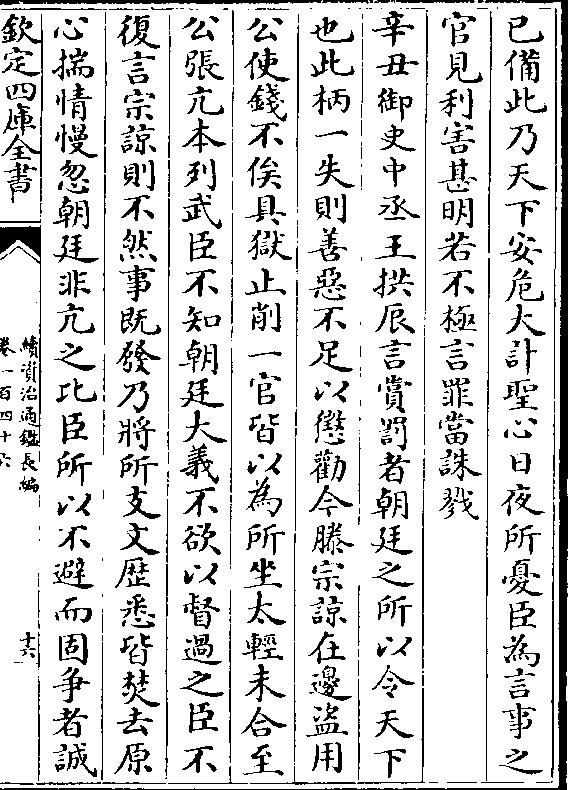 已備此乃天下安危大計聖心日夜所憂臣為言事之
官見利害甚明若不極言罪當誅戮
辛丑御史中丞王拱辰言賞罰者朝廷之所以令天下
也此柄一失則善惡不足以懲勸今滕宗諒在邊盜用
公使錢不俟具獄止削一官皆以為所坐太輕未合至
公張亢本列武臣不知朝廷大義不欲以督過之臣不
復言宗諒則不然事既發乃將所支文歴悉皆焚去原
心揣情慢忽朝廷非亢之比臣所以不避而固爭者誠
欽定四庫全書
續資治通鑑長編
卷一百四十六
十六